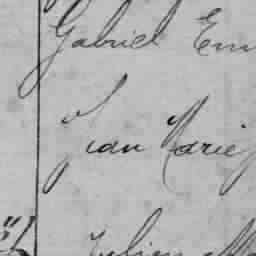 Gabriel Em
Jean Marie
Julien M